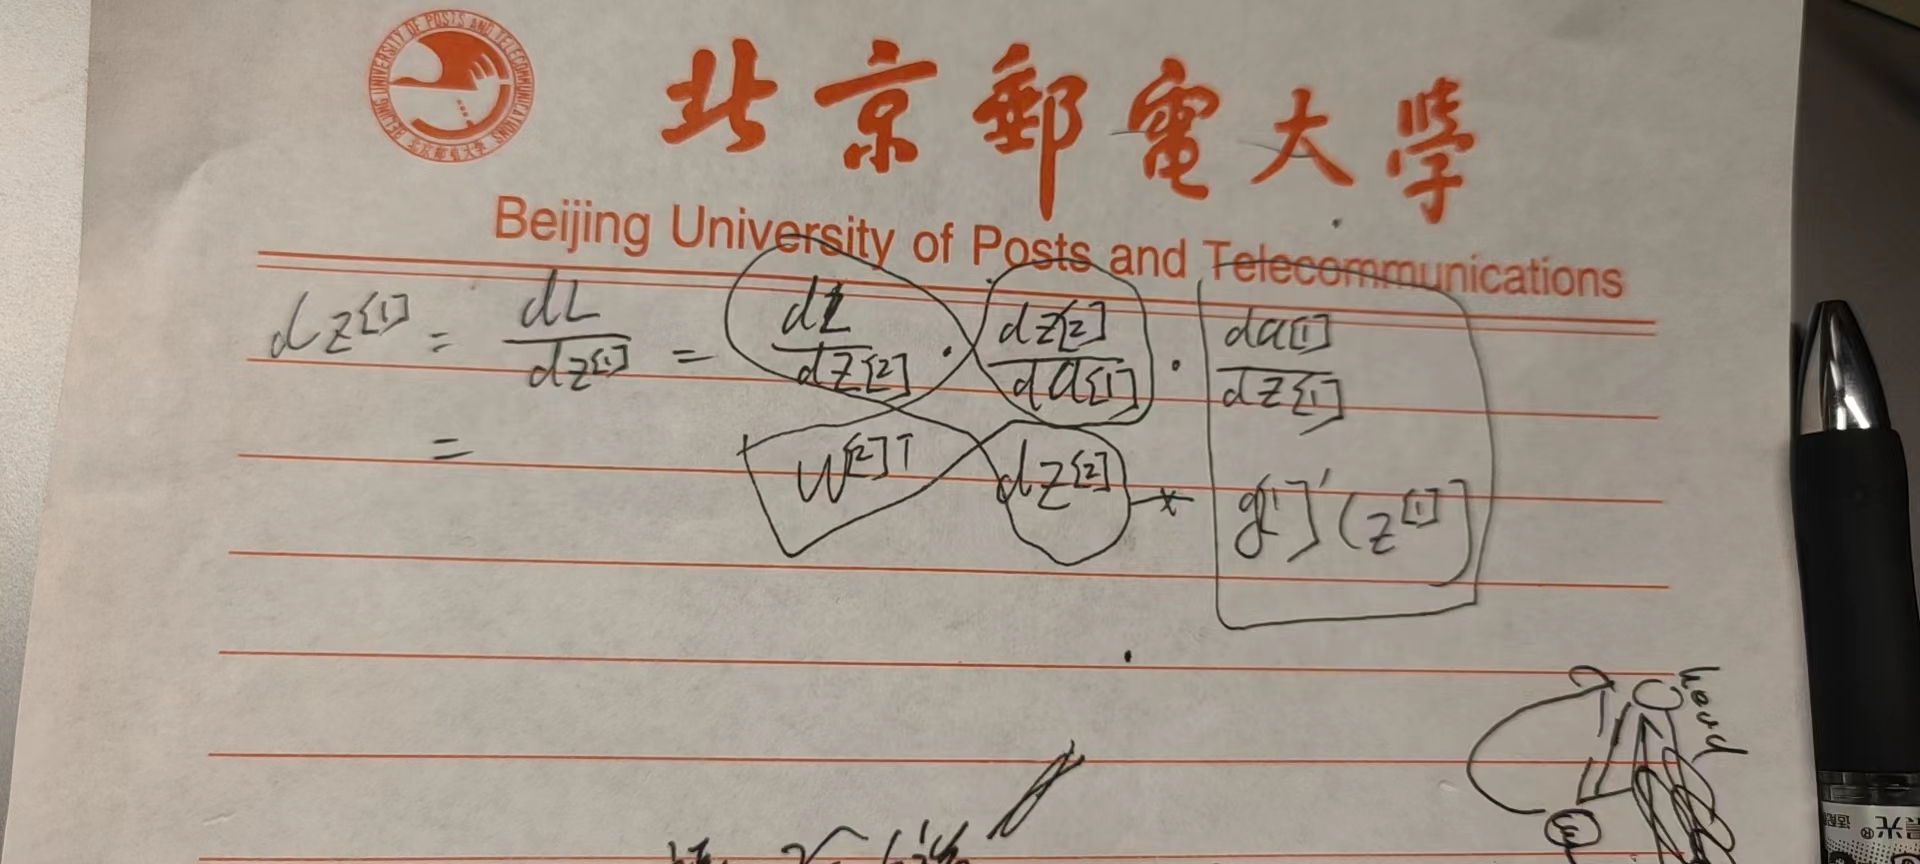 BEIJING UNIVERSITY OF POSTS AND TELECOMMUNICATIONS
北京邮电大学
北京郵電大學
Beijing University of Posts and Telecommunications
dz[1] = dL/dz[1] = dL/dz[2] · dz[2]/da[1] · da[1]/dz[1]
= W[2]T dz[2] * g[1]'(z[1])
head
晨光®